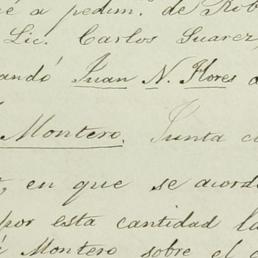 é a pedim. de Rob
Lic. Carlos Suarez,
ando Juan N. Flores
Montero. Junta c
, en que se acord
por esta cantidad la
Montero sobre el